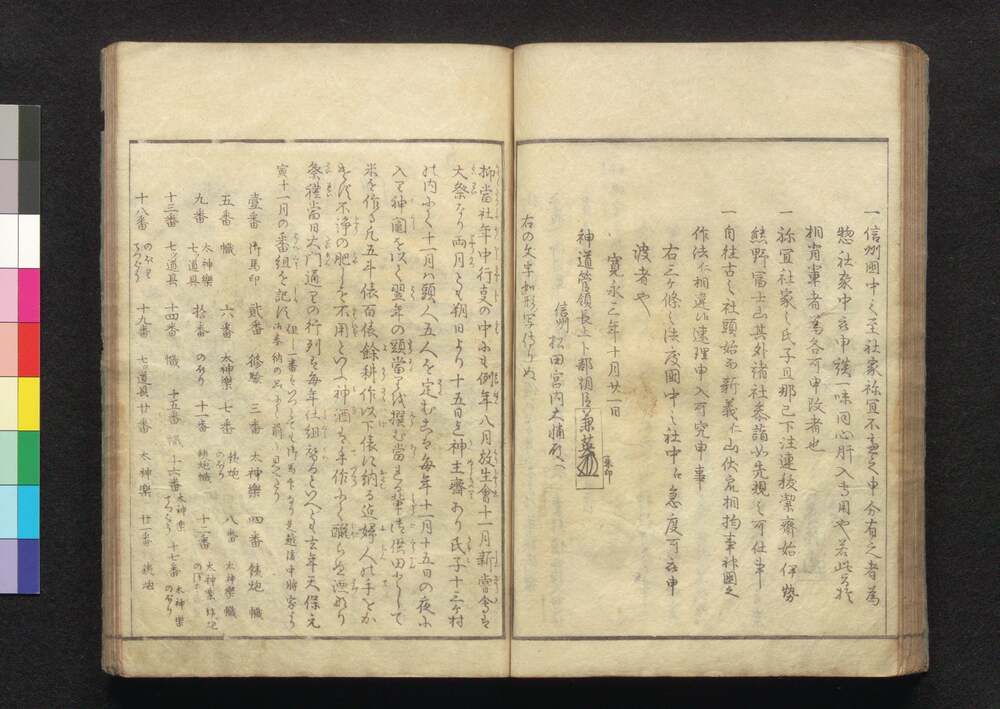 一信州国中之主社家祢宜不慮之申分有之者為
惣社家中急申談一味同心肝入専用也若此旨於
相背輩者為各可申改者也
一祢宜社家之氏子旦那已下注連祓潔斎始伊勢
熊野富士山其外諸社参詣如先規之可仕事
一自往古之社頭始而新義仁山伏家相拘事神国之
作法仁相違候速理申入可究申事
右三ケ條之法度国中之社中江急度可被申
渡者也
寛永二年十月廿一日
神道管領長上卜部朝臣兼英 朱印
信州 松田宮内大輔殿へ
右の文章如形写し侍りぬ
抑当社年中行支の中にも例年八月放生會十一月新嘗會を
大祭なり両月とも朔日より十五日迄神主齋あり氏子十三ヶ村
の内にて十一月ハ頭人五人を定む是ハ毎年十一月十五日の夜に
入て神圖を以て翌年の頭當を撰む當る輩ハ清供田にして
米を作る凡五斗俵百俵餘耕作以下俵に納る迄婦人の手をか
けず不浄の肥しを不用といへり神酒も手作にて醸らせ酒あり
祭禮當日大門通りの行列も毎年仕組替るといへとも去年天保元
寅十一月の番組を記す
壹番 御馬印 貳番 修験 三番 太神樂 四番 鉄炮 幟
五番 幟 六番 太神樂 七番 鉄炮 のぼり 八番 太神樂 幟
九番 太神樂 七ツ道具 拾番 のぼり 十一番 鉄炮 幟 十二番 太神樂 鉄炮 のぼり
十三番 七ツ道具 十四番 幟 十五番 幟 十六番 太神樂 十七番 太神樂 のぼり
十八番 のぼり てつぽう 十九番 七ツ道具 廿番 太神樂 廿一番 鉄炮